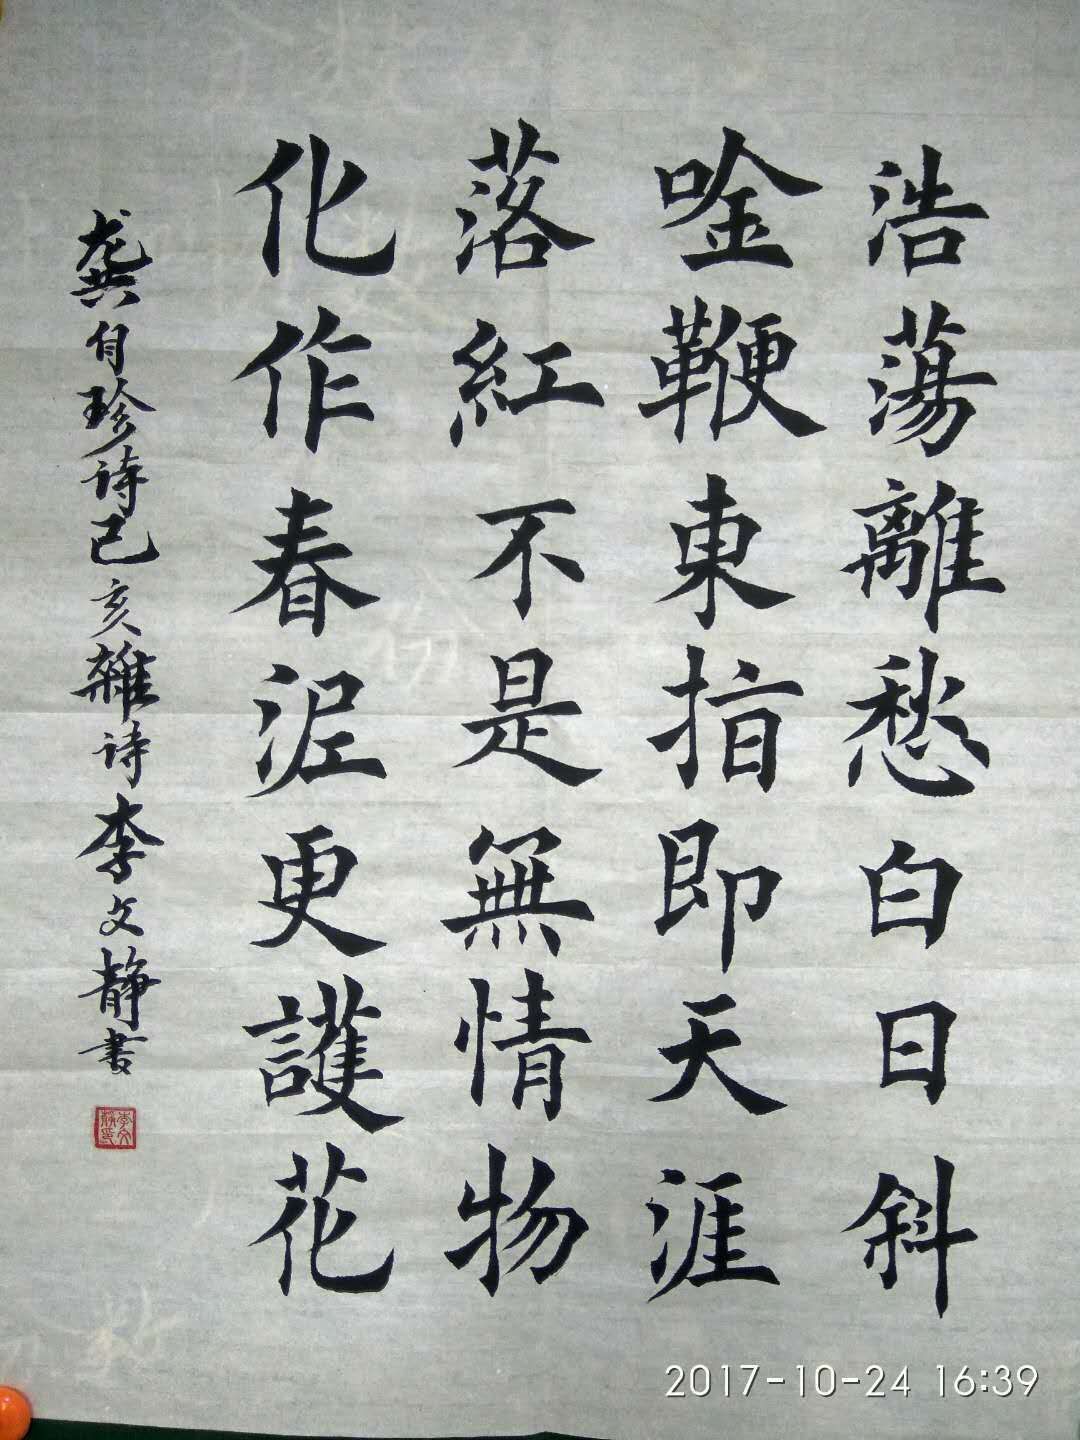 浩蕩離愁白日斜
唫鞭東指即天涯
落紅不是無情物
化作春泥更護花
龚自珍诗己亥雜诗李文静書
2017-10-24 16:39